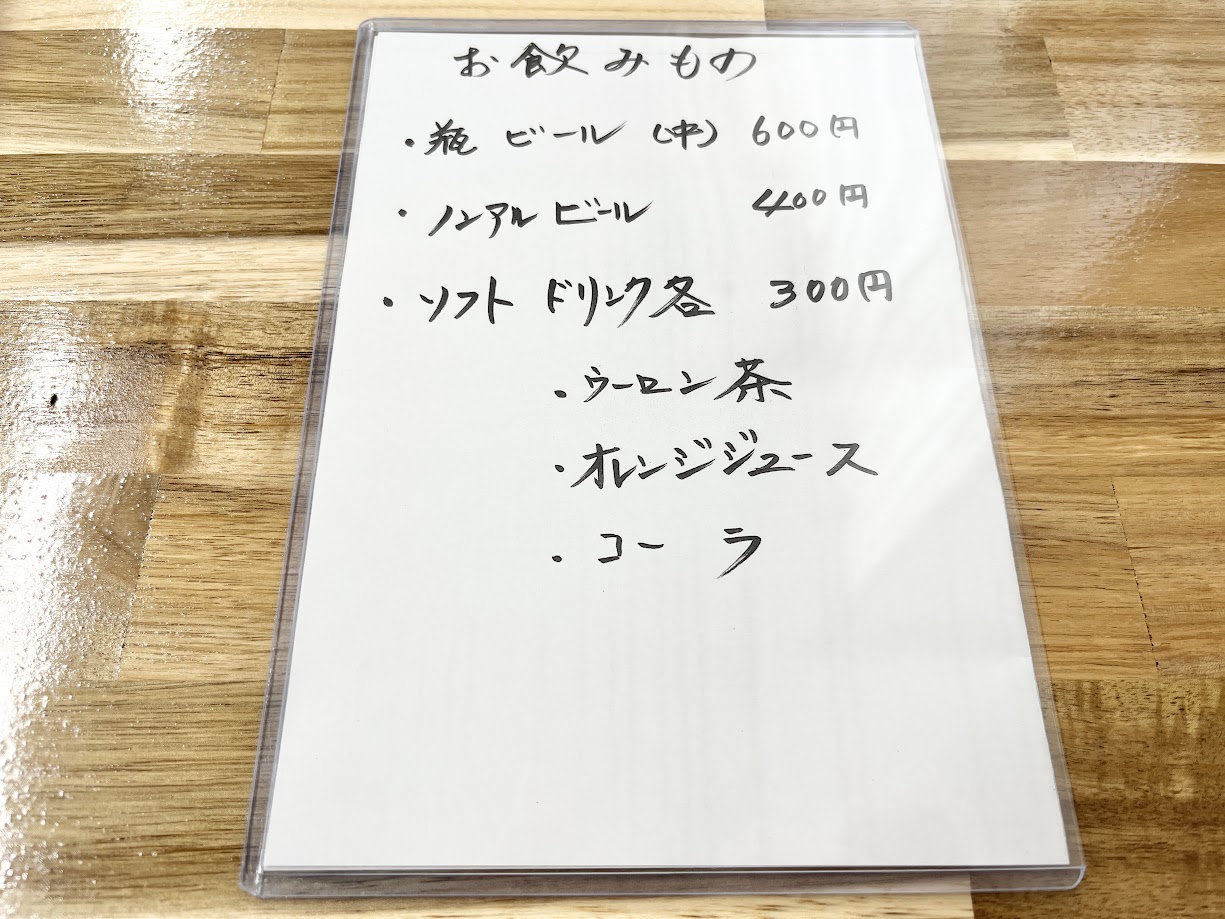 お飲みもの
・瓶 ビール (中) 600円
・ノンアル ビール 400円
・ソフト ドリンク各 300円
・ウーロン茶
・オレンジジュース
・コーラ